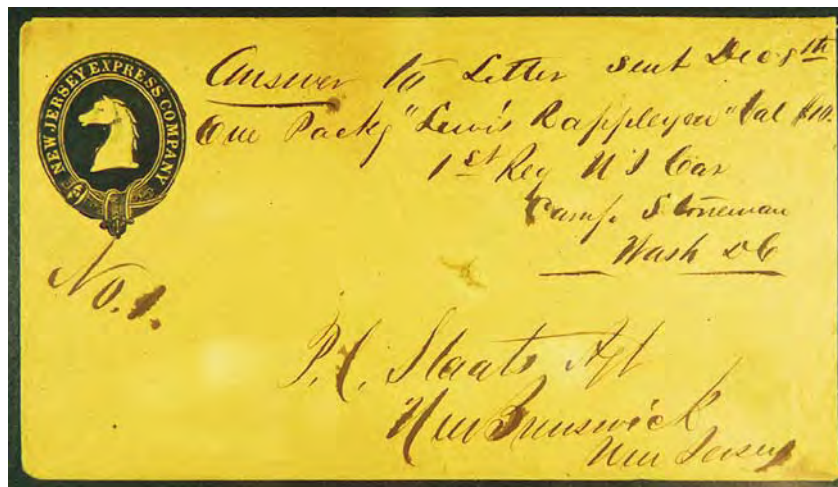 NEW JERSEY EXPRESS COMPANY
Answer to Letter Sent Dec 8th
One Packg "Lewis Rappleyea" Val $10.
1st Reg N J Cav
Camp Stoneman
Wash DC
No. 1.
P. C. Staats Agt
New Brunswick
New Jersey